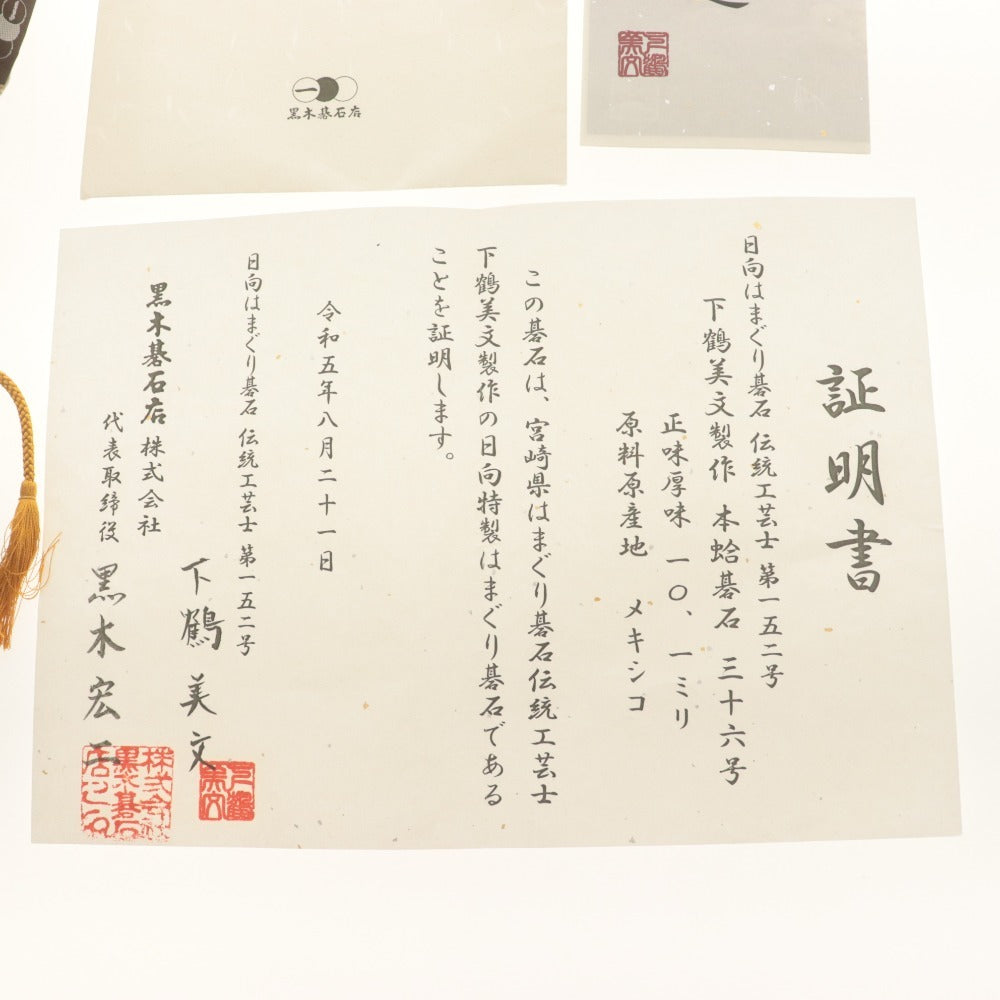 黒木碁石店
下鶴
美文
証明書
日向はまぐり碁石 伝統工芸士 第一五二号
下鶴美文製作 本蛤碁石 三十六号
正味厚味 一〇、一ミリ
原料原産地 メキシコ
この碁石は、宮崎県はまぐり碁石伝統工芸士
下鶴美文製作の日向特製はまぐり碁石である
ことを証明します。
令和五年八月二十一日
日向はまぐり碁石 伝統工芸士 第一五二号
下鶴美文
下鶴
美文
黒木碁石店 株式会社
代表取締役 黒木宏二
株式会社
黒木碁石
店之印